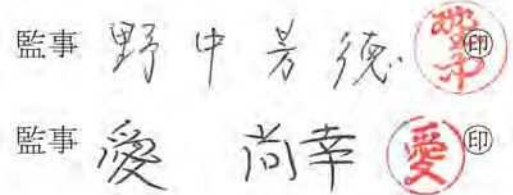 監事 野中芳徳 ㊞
監事 愛 尚幸 ㊞